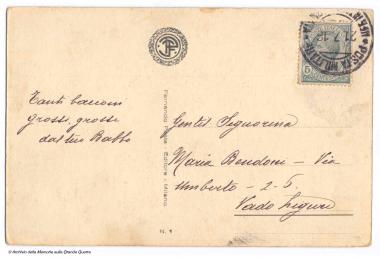 POSTA MILITARE
5
Tanti bacioni
grossi, grossi
dal tuo Babbo
Gentil. Signorina
Maria Bendoni - Via
Umberto - 2 - 5.
Vado Ligure
Editore - Milano.
N. 1
© Archivio della Memoria sulla Grande Guerra